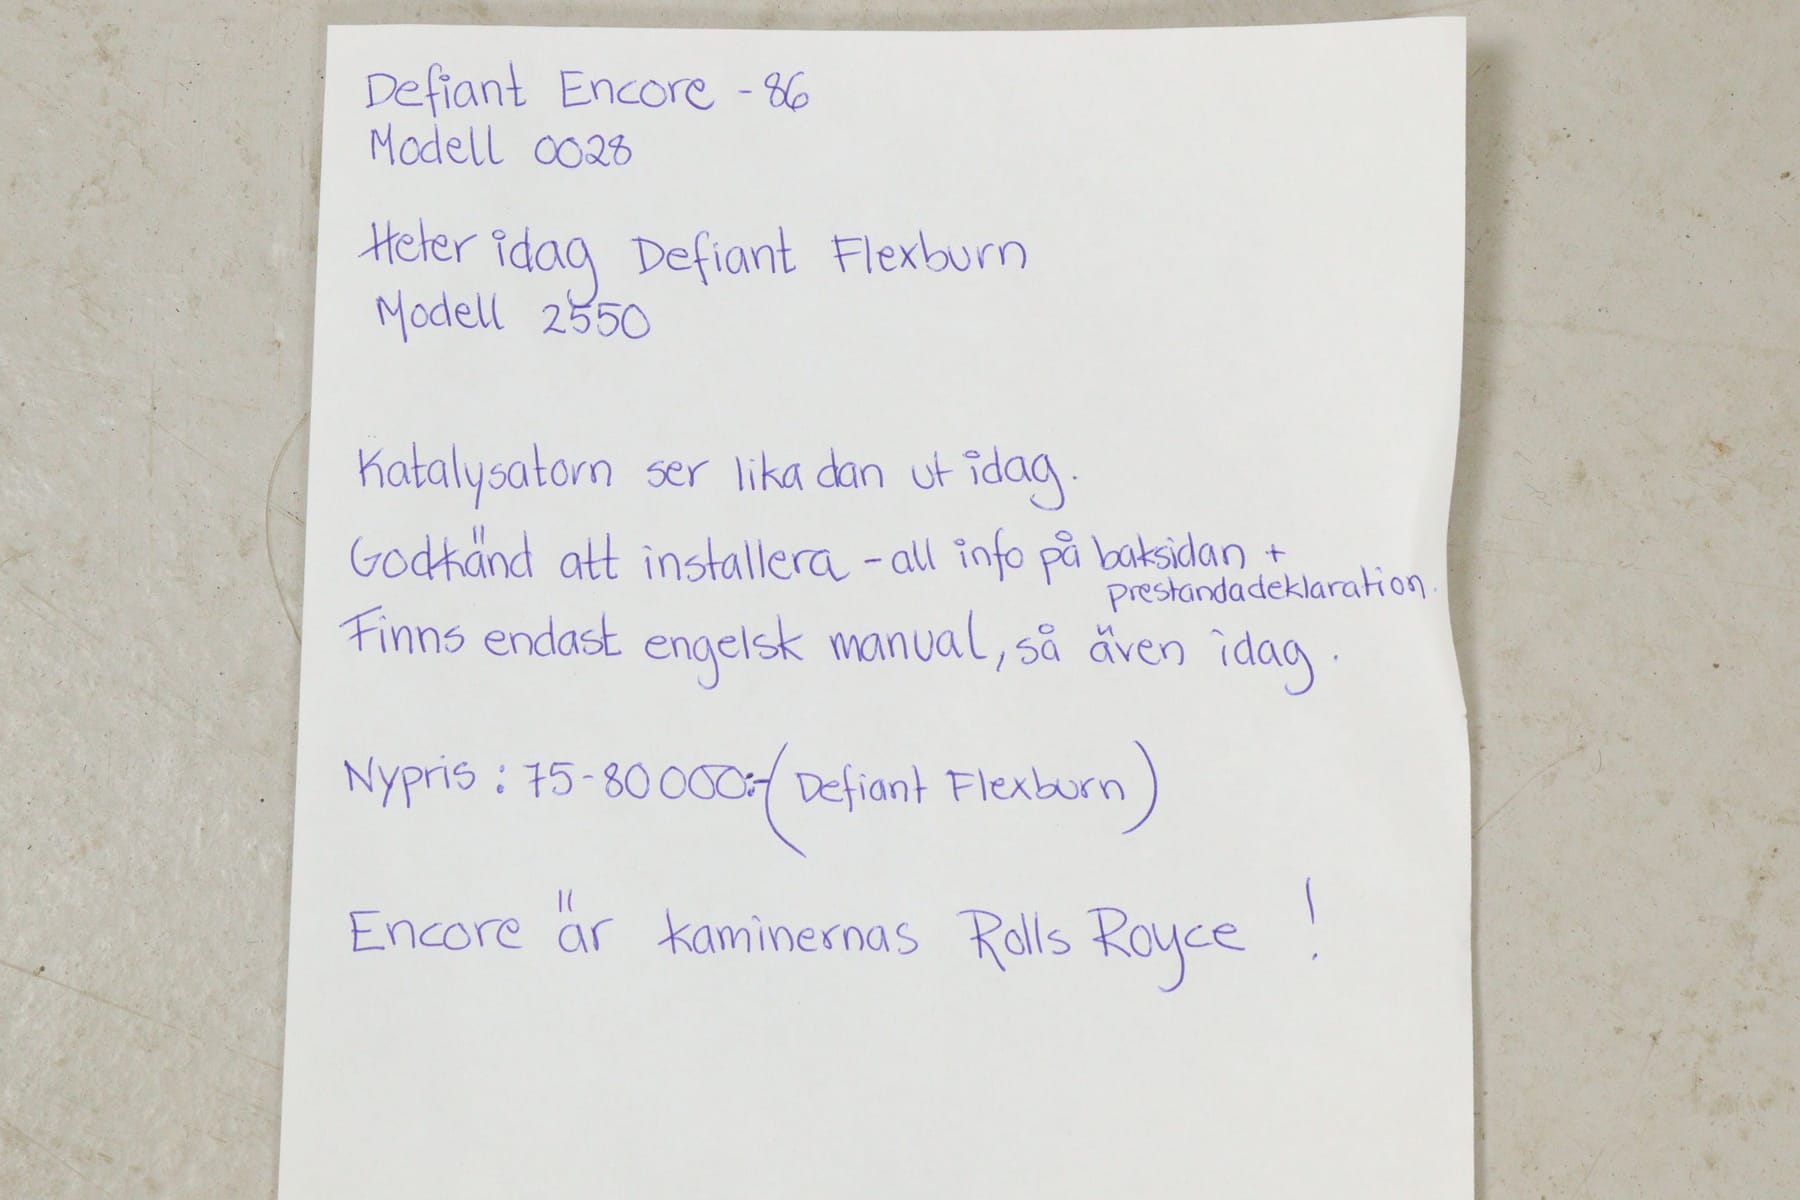 Defiant Encore -86
Modell 0028
Heter idag Defiant Flexburn
Modell 2550
Katalysatorn ser lika dan ut idag.
Godkänd att installera - all info på baksidan +
prestandadeklaration.
Finns endast engelsk manual, så även idag.
Nypris: 75-80 000:- (Defiant Flexburn)
Encore är kaminernas Rolls Royce !